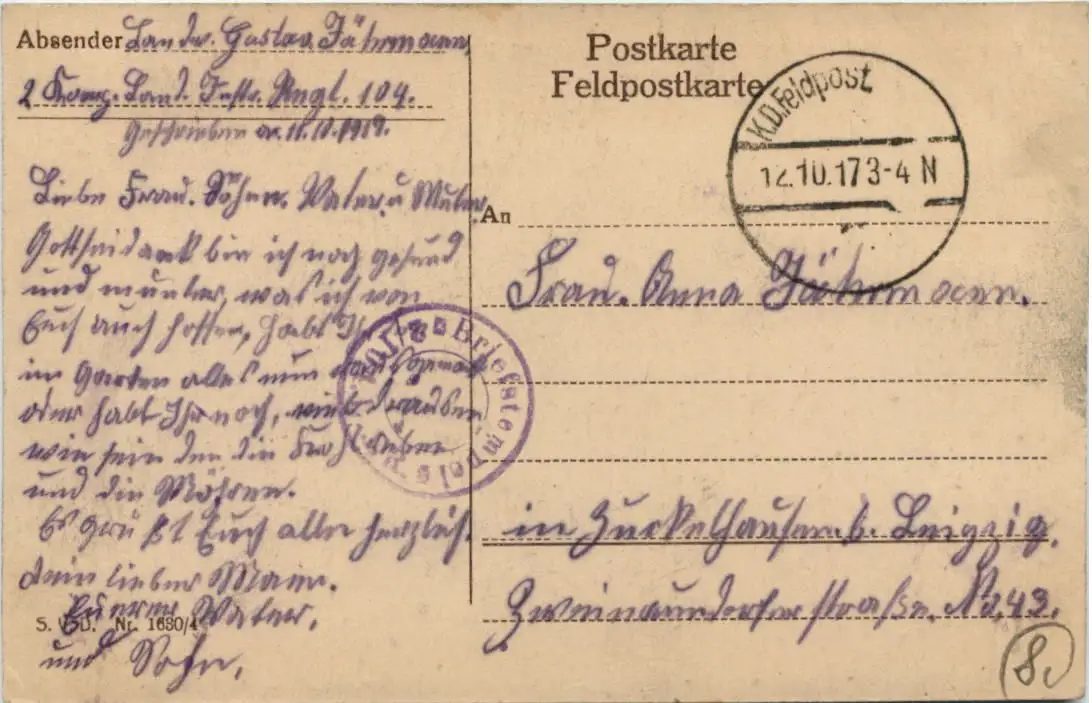 Absender Landw. Gustav Jährmann
2 Komp. Land. Inftr. Rngt. 104.
Geschrieben am 11.10.1917.
Liebe Frau. Söhne. Vater u Mutter,
Gottseidank bin ich noch gesund
und munter, was ich von
Euch auch hoffen, habt Ihr
im Garten alles nun
oder habt Ihr noch, draußen,
wie sein den die
und die Möhren.
Es grüßt Euch alle herzlich.
dein lieber Mann.
Euerer Vater,
und Sohn,
S. V. D. Nr. 1680/4
Postkarte
Feldpostkarte
K.D. Feldpost
12.10.17 3-4 N
Briefstempel
An
Frau. Anna Jährmann.
in Zuckelhausen. b. Leipzig.
Zweinaundorferstraße. No. 43.
8.